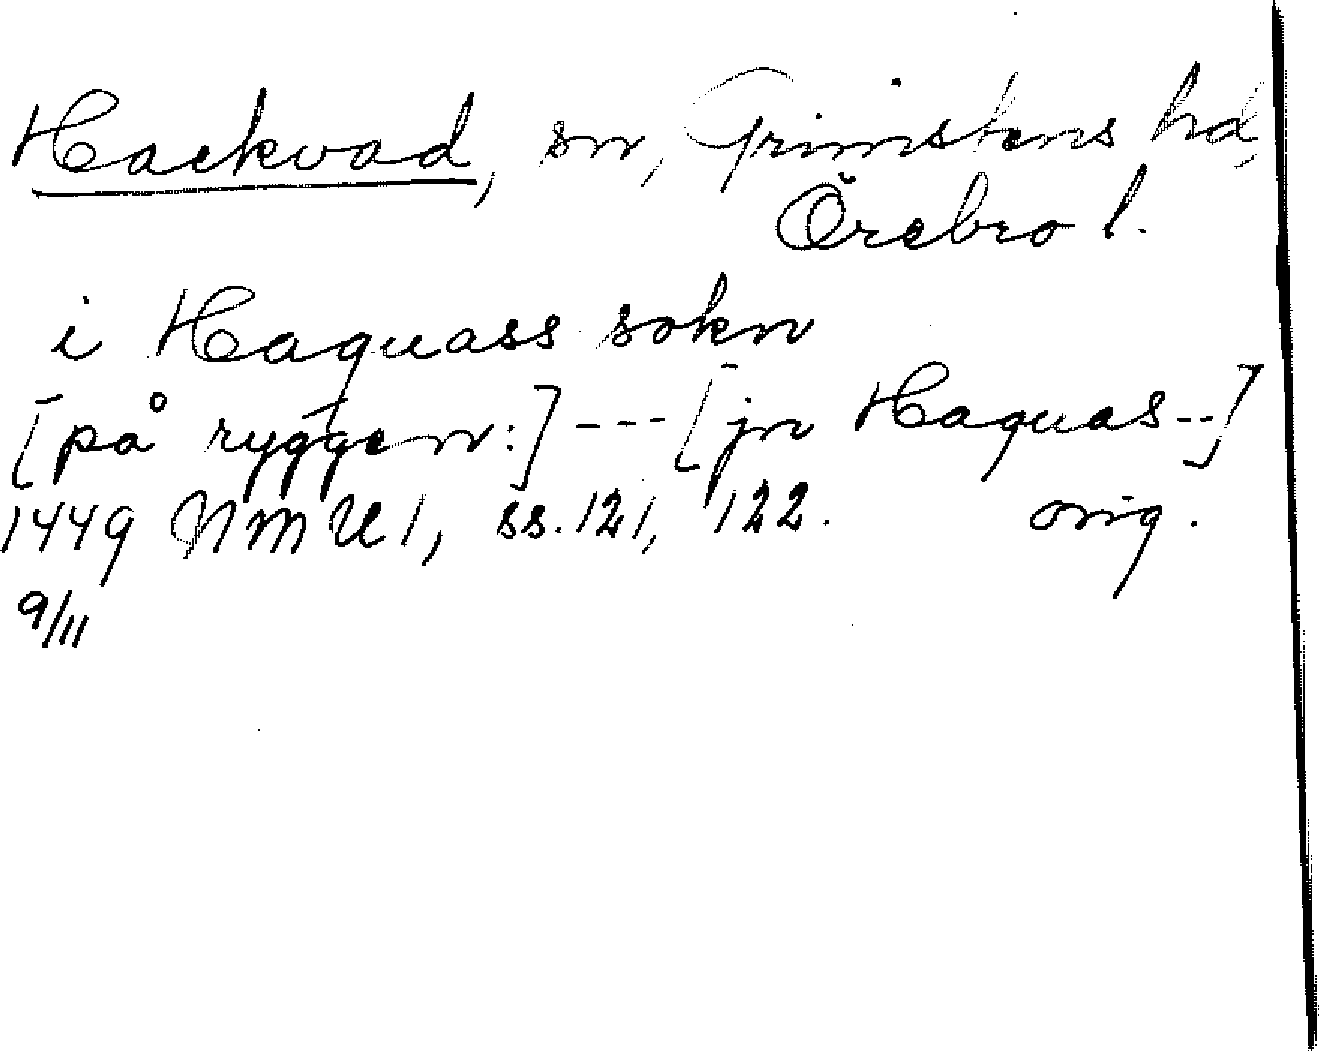 Hackvad, sn, Grimstens hd,
Örebro l.
i Haquass sokn
[på ryggen:] --- [jn Haquas--]
1449 NMU 1, ss. 121, 122. orig.
9/11